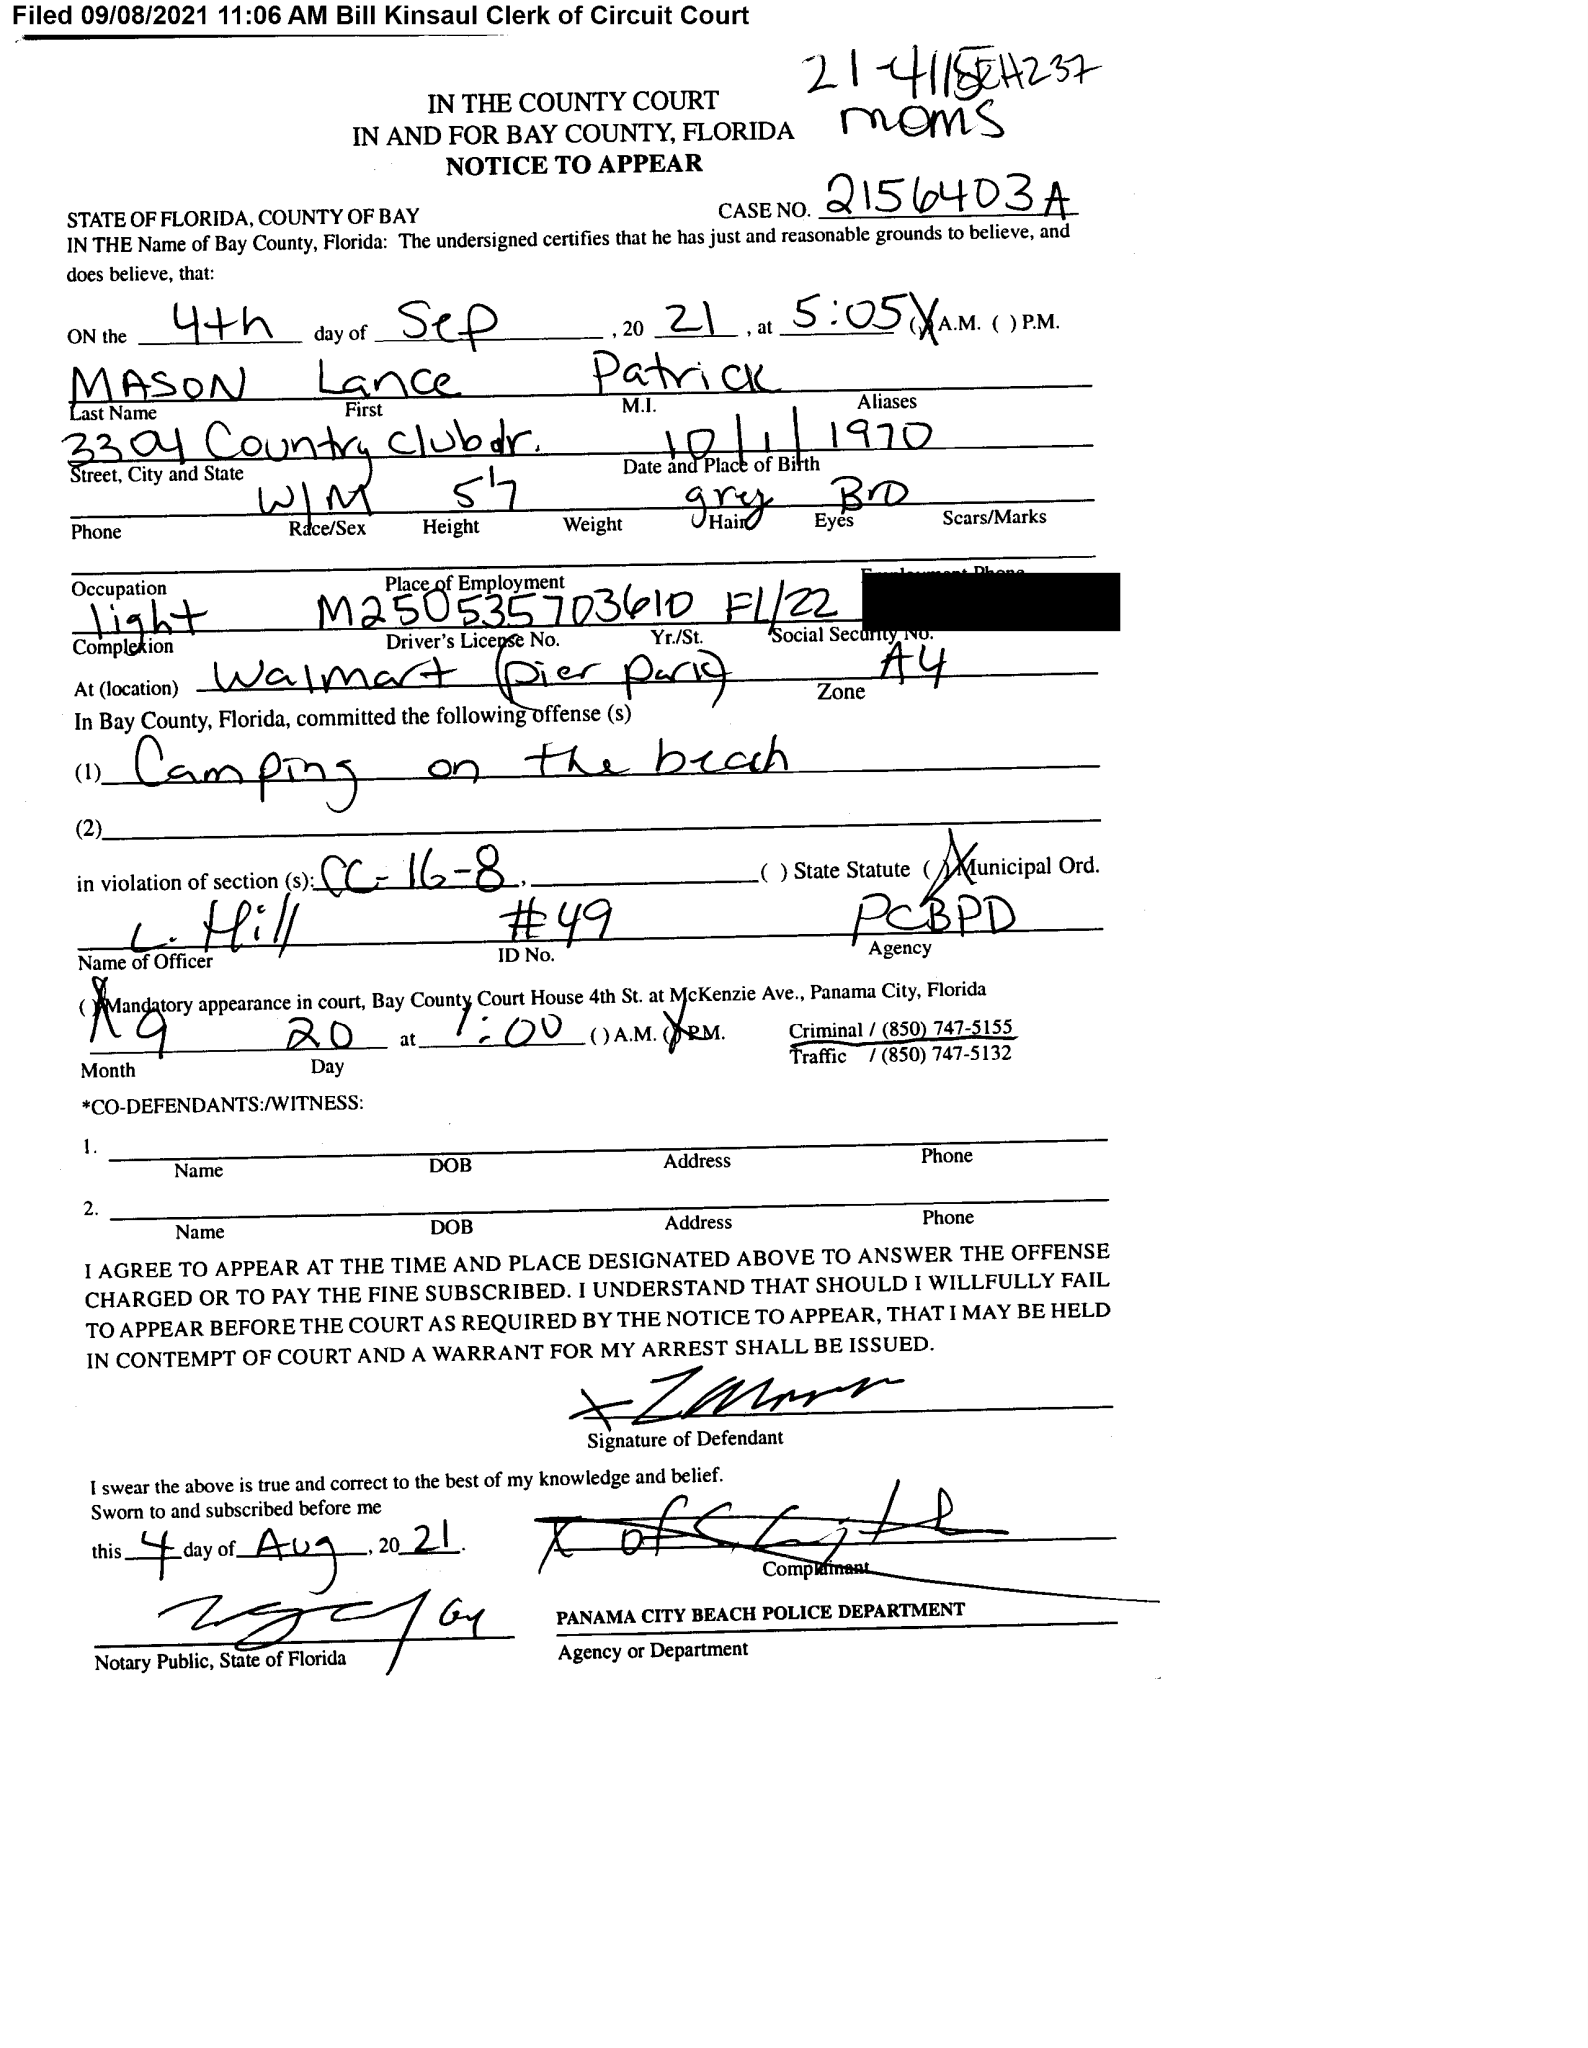 Filed 09/08/2021 11:06 AM Bill Kinsaul Clerk of Circuit Court
21-4118
MOMS
IN THE COUNTY COURT
IN AND FOR BAY COUNTY, FLORIDA
NOTICE TO APPEAR
STATE OF FLORIDA, COUNTY OF BAY CASE NO. 2156403A
IN THE Name of Bay County, Florida: The undersigned certifies that he has just and reasonable grounds to believe, and
does believe, that:
ON the 4th day of Sep , 20 21 , at 5:05 (X) A.M. ( ) P.M.
MASON Lance Patrick
Last Name First M.I. Aliases
3304 Country Club dr. 10/1/1970
Street, City and State Date and Place of Birth
W/M 5'7 grey BrO
Phone Race/Sex Height Weight Hair Eyes Scars/Marks
Occupation Place of Employment Employment Phone
light M250535703610 Fl/22
Complexion Driver's License No. Yr./St. Social Security No.
At (location) Walmart (pier park) Zone A4
In Bay County, Florida, committed the following offense (s)
(1) Camping on the beach
(2)
in violation of section (s): CC-16-8 , ( ) State Statute (X) Municipal Ord.
L. Hill #49 PCBPD
Name of Officer ID No. Agency
(X) Mandatory appearance in court, Bay County Court House 4th St. at McKenzie Ave., Panama City, Florida
9 20 at 1:00 ( ) A.M. (X) P.M. Criminal / (850) 747-5155
Month Day Traffic / (850) 747-5132
*CO-DEFENDANTS:/WITNESS:
1.
Name DOB Address Phone
2.
Name DOB Address Phone
I AGREE TO APPEAR AT THE TIME AND PLACE DESIGNATED ABOVE TO ANSWER THE OFFENSE
CHARGED OR TO PAY THE FINE SUBSCRIBED. I UNDERSTAND THAT SHOULD I WILLFULLY FAIL
TO APPEAR BEFORE THE COURT AS REQUIRED BY THE NOTICE TO APPEAR, THAT I MAY BE HELD
IN CONTEMPT OF COURT AND A WARRANT FOR MY ARREST SHALL BE ISSUED.
X
Signature of Defendant
I swear the above is true and correct to the best of my knowledge and belief.
Sworn to and subscribed before me
this 4 day of Aug , 20 21 .
Complainant
PANAMA CITY BEACH POLICE DEPARTMENT
Notary Public, State of Florida Agency or Department